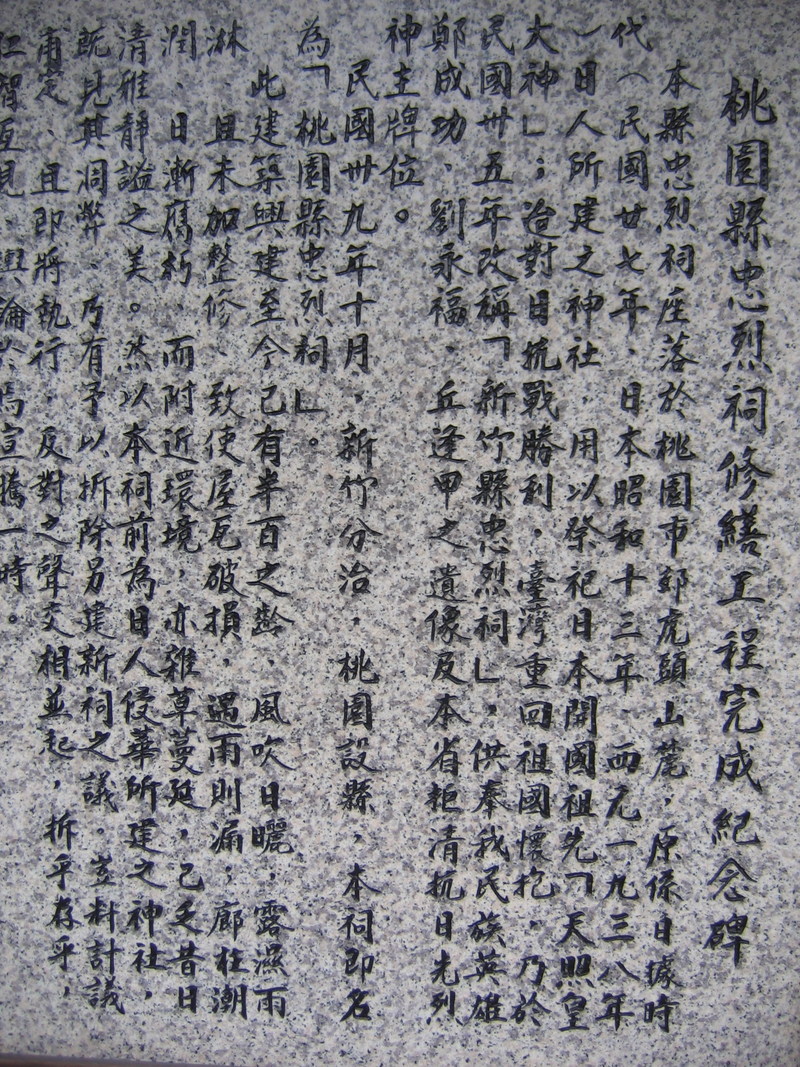 桃園縣忠烈祠修繕工程完成紀念碑
本縣忠烈祠座落於桃園市郊虎頭山麓，原係日據時
代（民國廿七年、日本昭和十三年、西元一九三八年
）日人所建之神社，用以祭祀日本開國祖先「天照皇
大神」；迨對日抗戰勝利，臺灣重回祖國懷抱，乃於
民國卅五年改稱「新竹縣忠烈祠」，供奉我民族英雄
鄭成功、劉永福、丘逢甲之遺像及本省拒清抗日先烈
神主牌位。
民國卅九年十月，新竹分治，桃園設縣，本祠即名
為「桃園縣忠烈祠」。
此建築興建至今已有半百之齡、風吹日曬，露濕雨
淋、且未加整修、致使屋瓦破損，遇雨則漏；廊柱潮
潤、日漸腐朽、而附近環境，亦雜草蔓延，已乏昔日
清雅靜謐之美。然以本祠前為日人侵華所建之神社，
既見其凋弊、乃有予以拆除另建新祠之議。豈料計議
甫定、且即將執行，反對之聲交相並起，拆乎存乎，
仁智互見、輿論於焉宣騰一時。